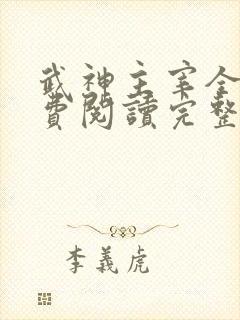 武神主宰全
費閱讀完整
李義虎